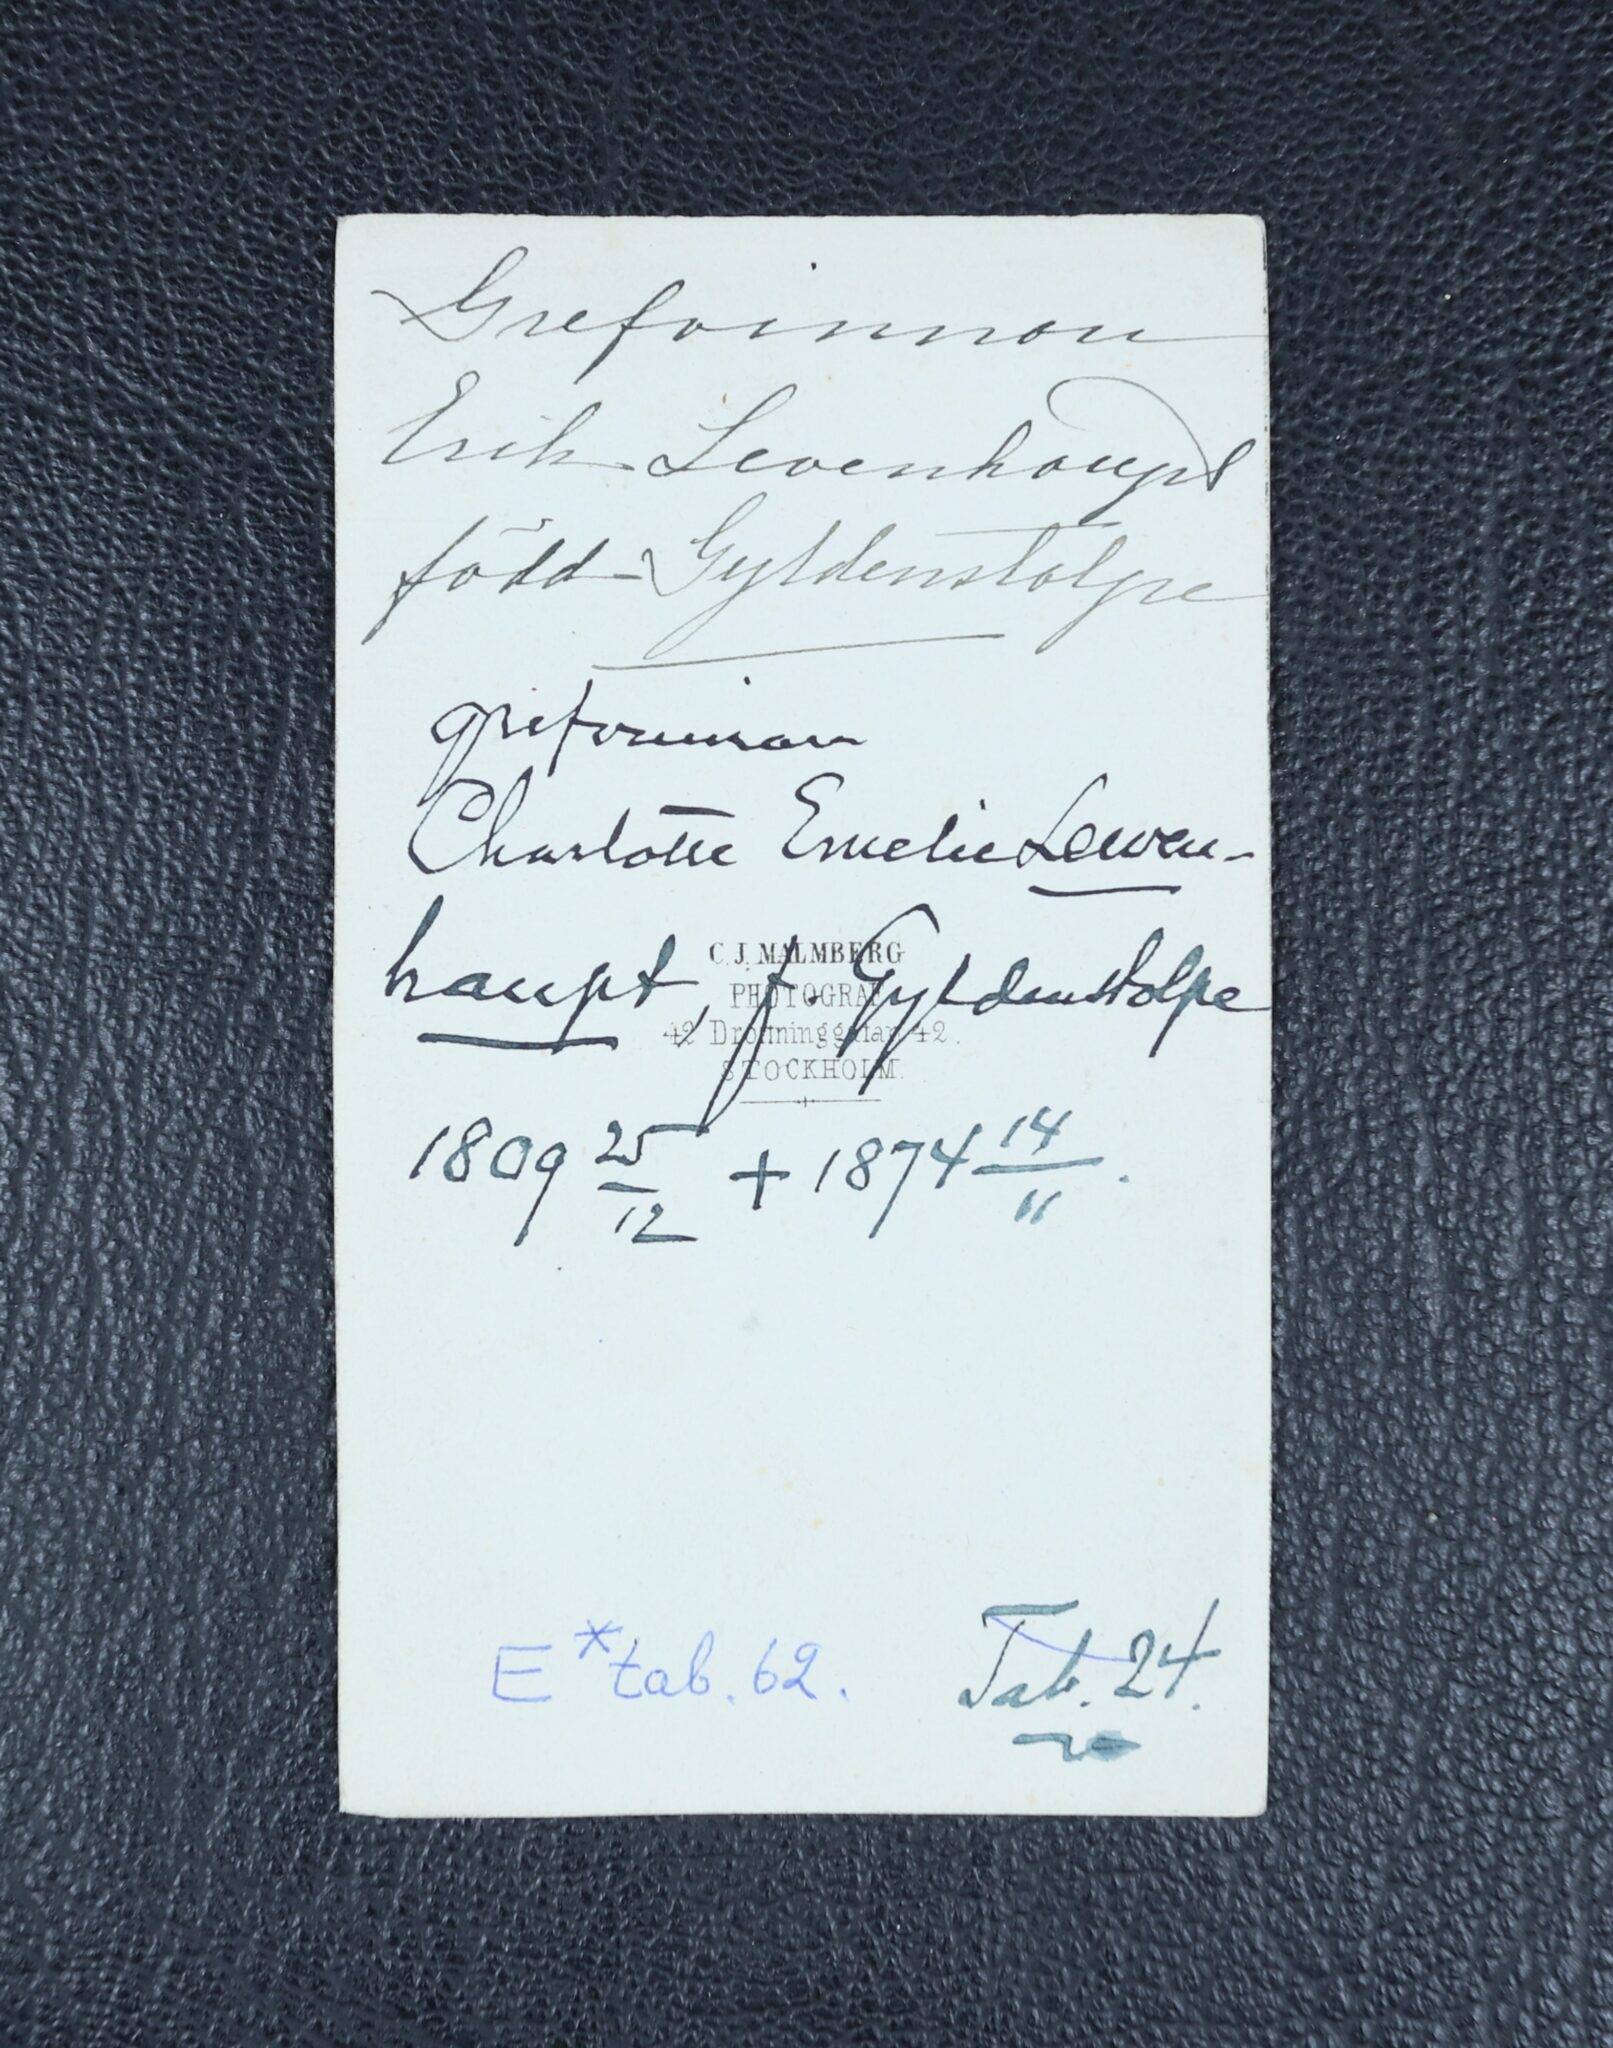 Grefvinnan
Erik Levenhaupt
född Gyldenstolpe
grefvinnan
Charlotte Emelie Lewen-
haupt, f. Gyldenstolpe
C. J. MALMBERG
PHOTOGRAF
42 Drottninggatan 42.
STOCKHOLM.
1809 25/12 + 1874 14/11.
E* tab. 62. Tab. 24.